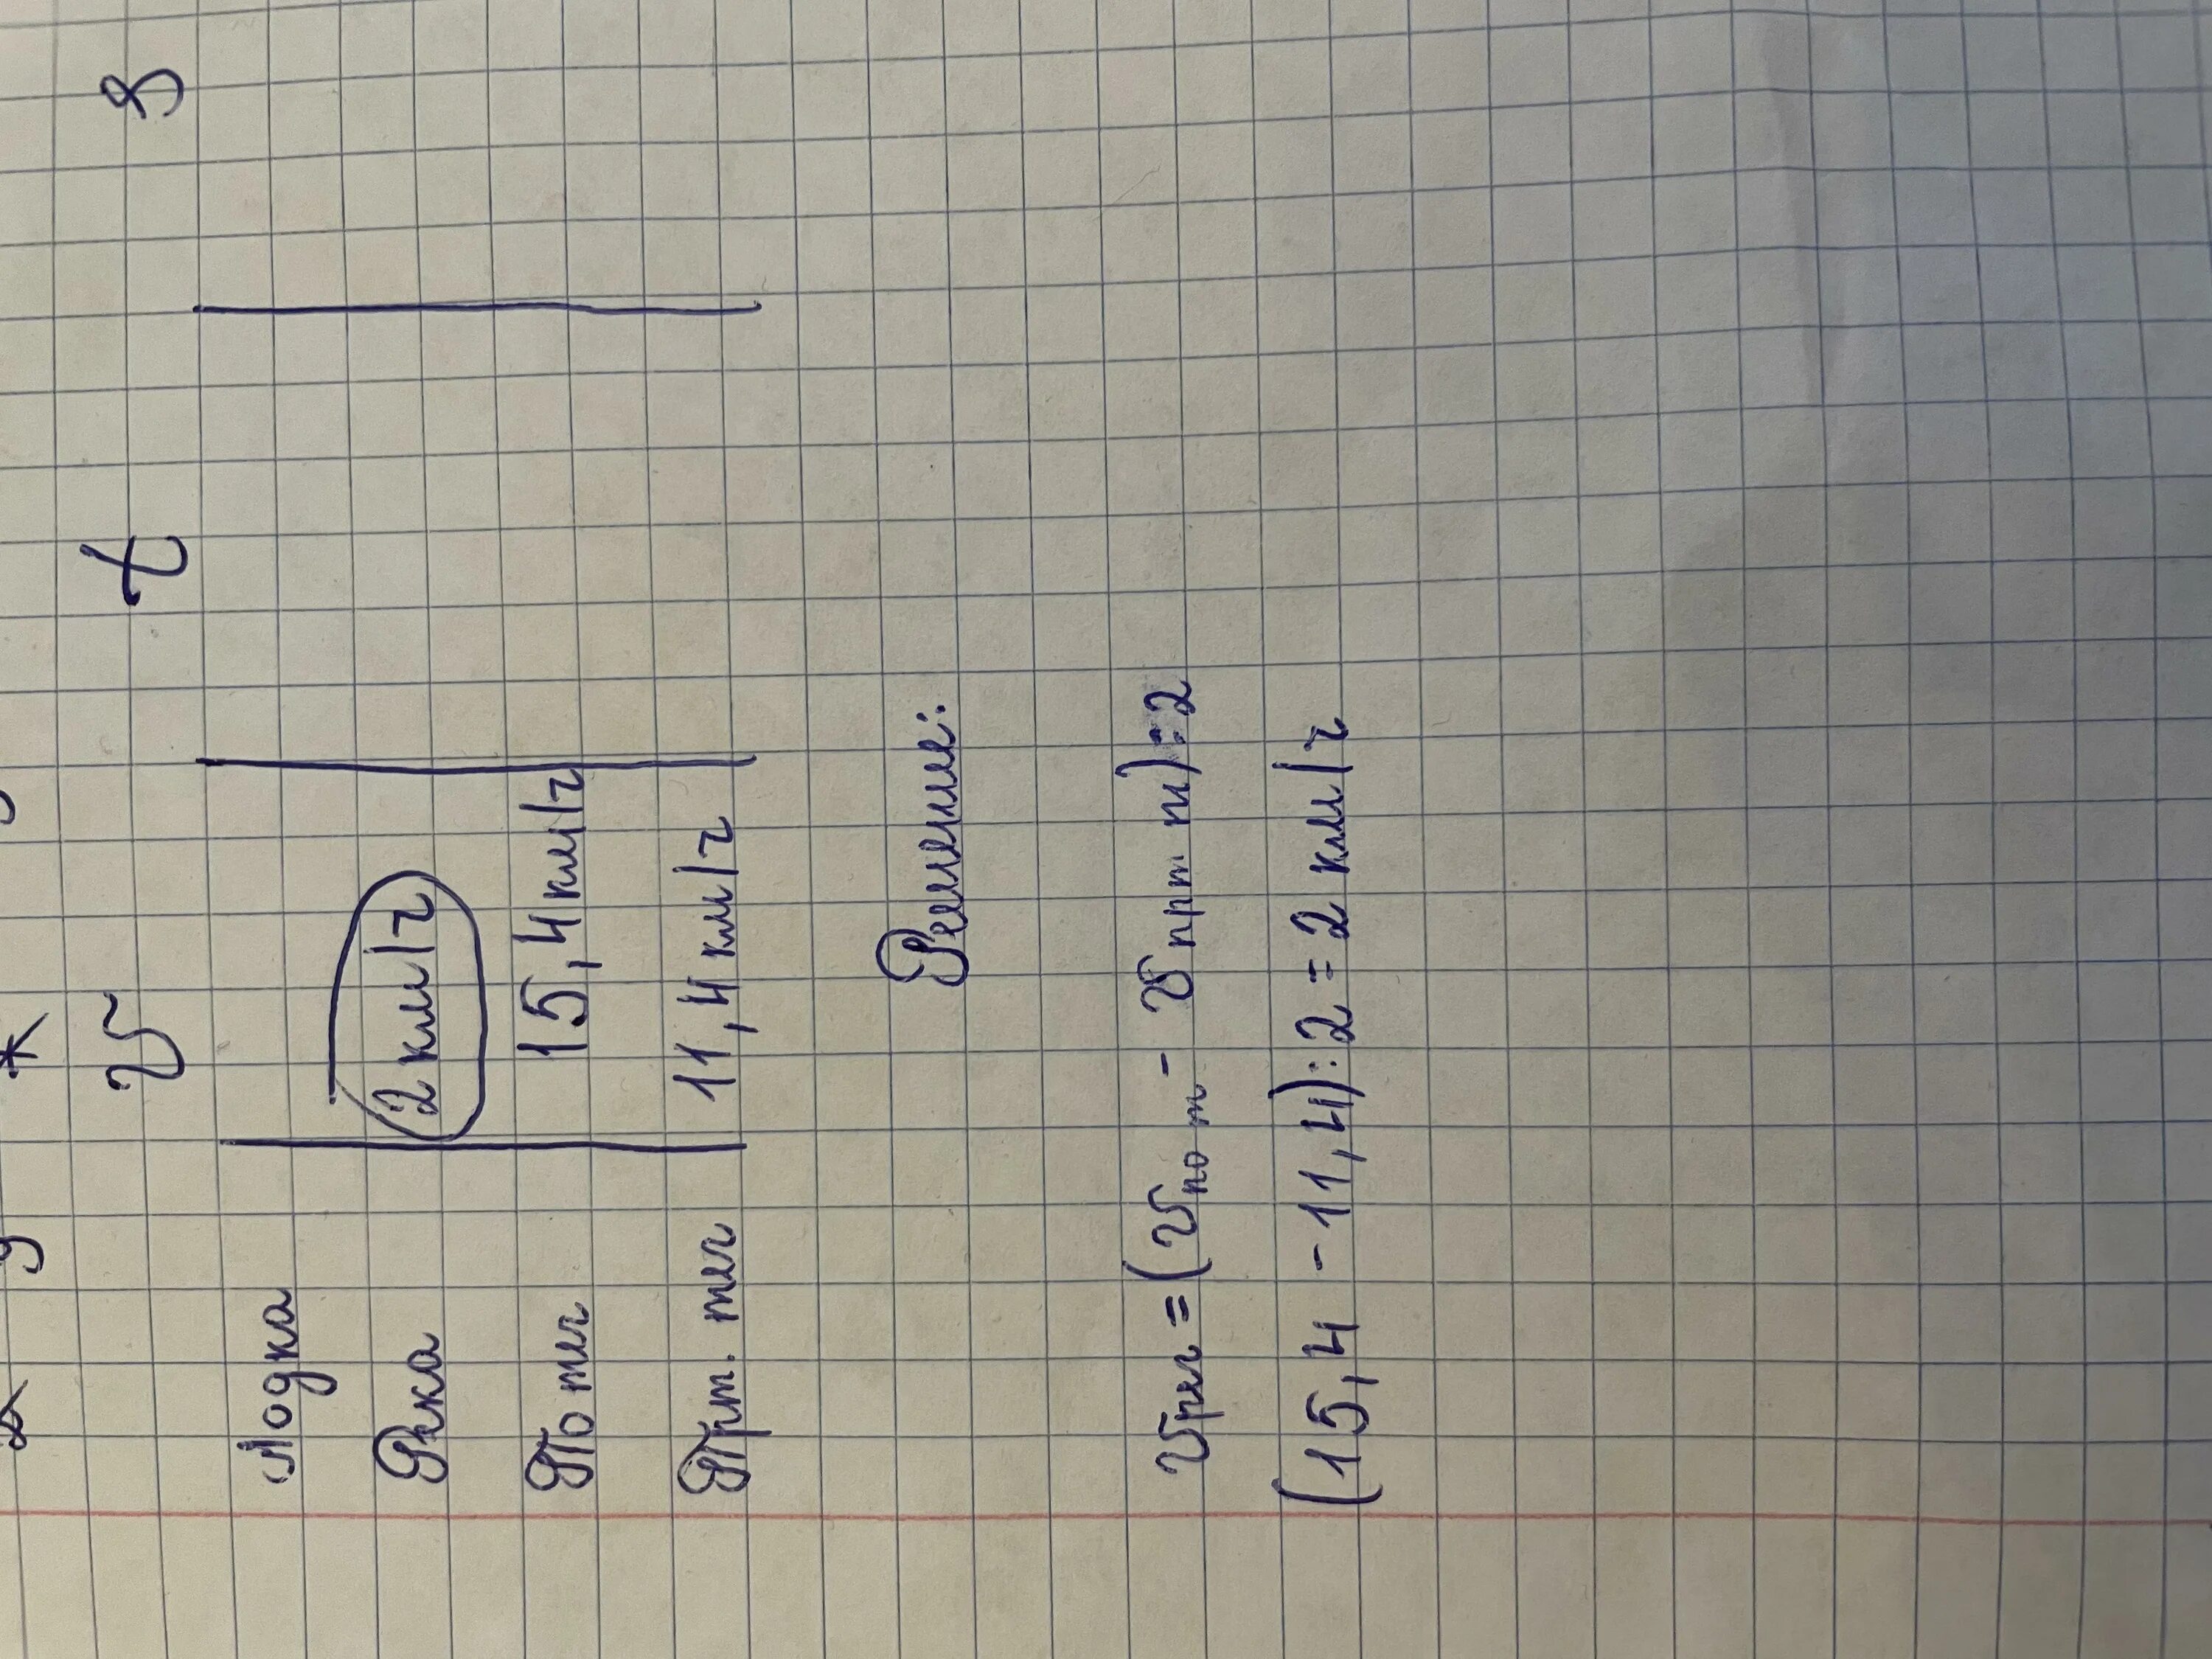 v t S
Лодка
Река 2 км/ч
По теч 15,4 км/ч
Прт. теч 11,4 км/ч
Решение:
vреч = (vпо т - vпрт т) : 2
(15,4 - 11,4) : 2 = 2 км/ч